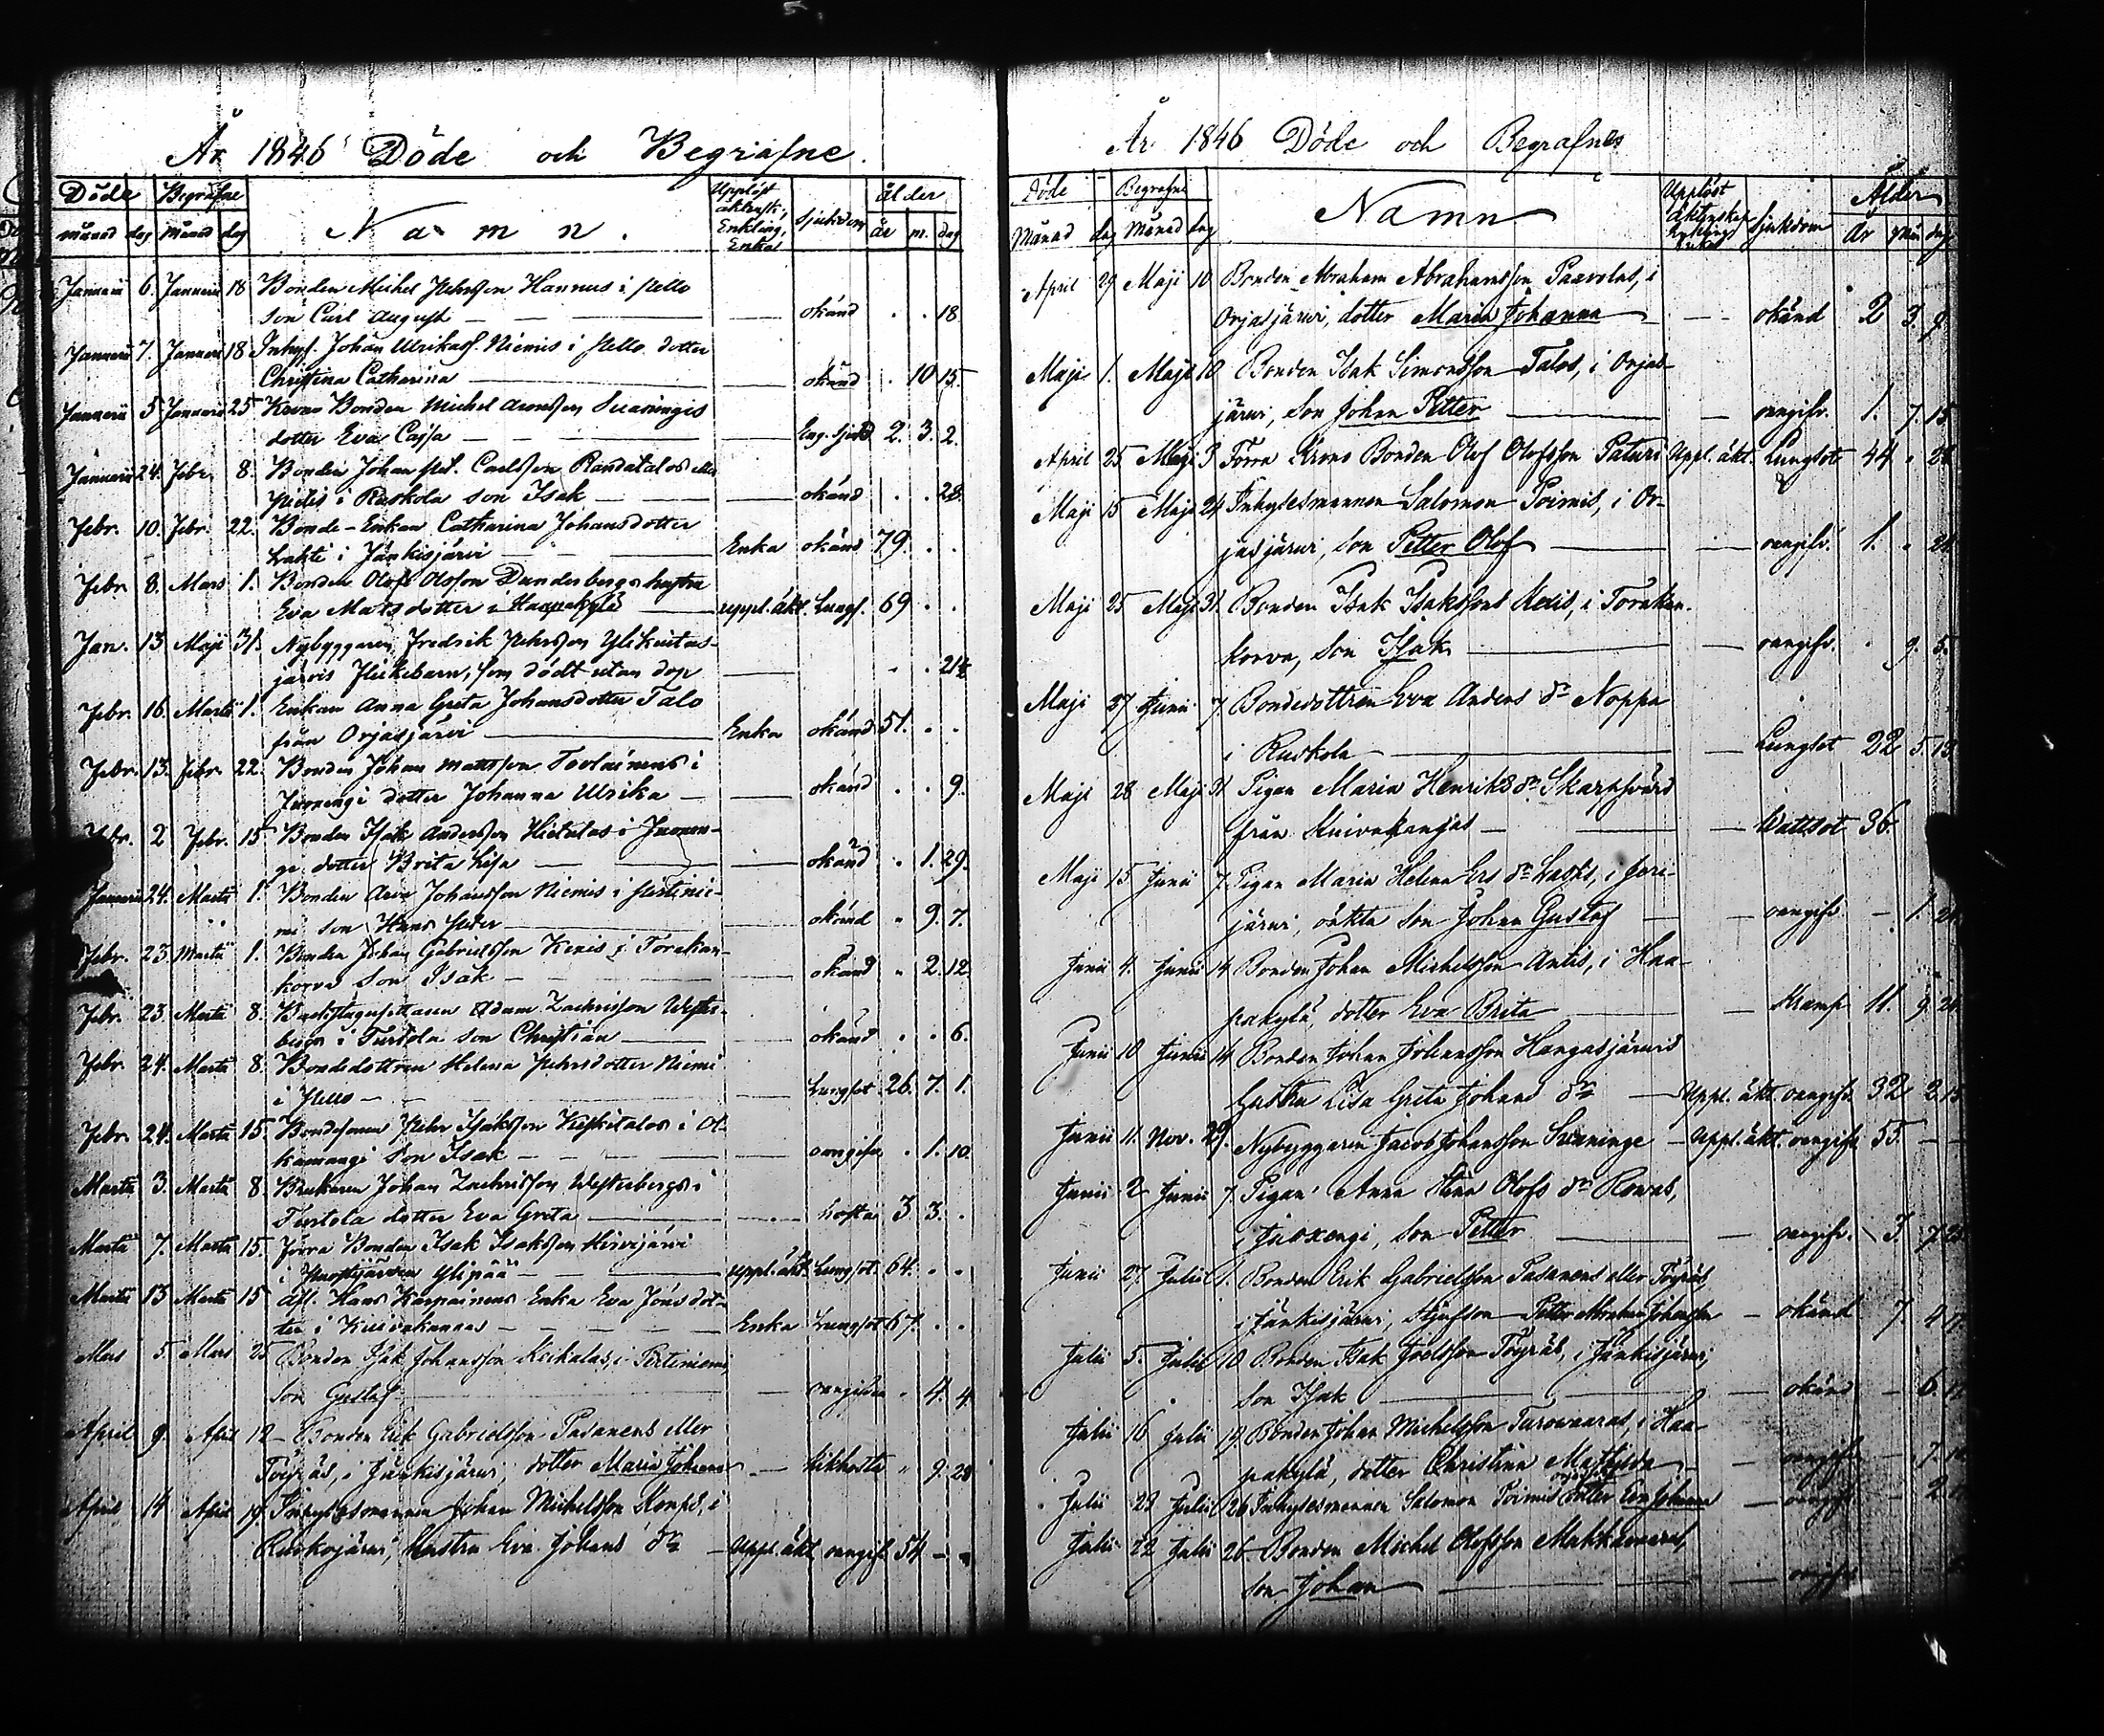 År 1846 Döde och Begrafne.
Döde Begrafne Namn. Upplöst äktensk., Enkling, Enka Sjukdom ålder
månad dag Månad dag år m. dag
Januarii 6. Januarii 18 Bonden Michel Pehrsson Hannus i Pello
son Carl August okänd . . 18
Januarii 7. Januarii 18 Inhys. Johan Niemis i Pello dotter
Christina Catharina okänd . 10 15.
Januarii 5 Januarii 25 Krono Bonden Michel Aronsson
dotter Eva Cajsa 2. 3. 2.
Januarii 24. Febr. 8. Bonden Johan Pet. Carlsson Randatalos eller
i Ruskola son Isak okänd . . 28.
Febr. 10. Febr. 22. Bonde-Enkan Catharina Johansdotter
Lahti i Jänkisjärvi Enka okänd 79. . .
Febr. 8. Mars 1. Bonden Olof Olsson Dundersbergs hustru
Eva Matsdotter i Haapakylä uppl. äkt. Lungs. 69 . .
Jan. 13 Maji 31. Nybyggaren Fredrik Pehrsson Ylikuitas-
järvis flickebarn, som dödt utan dop . . 21
Febr. 16. Martii 1. Enkan Anna Greta Johansdotter Talo
från Orjasjärvi Enka okänd 51. . .
Febr. 13. Febr. 22. Bonden Johan Mattsson Teolainens i
Juoxengi dotter Johanna Ulrika okänd . . 9.
Febr. 2 Febr. 15 Bonden Isak Andersson Hietalas i Juoxen-
gi dotter Brita Lisa okänd . 1. 29.
Januarii 24. Martii 1. Bonden Aron Johansson Niemis i Pertinie-
mi son Hans Peter okänd . 9. 7.
Febr. 23. Martii 1. Bonden Johan Gabrielsson Kexis i Torakan-
korva son Isak okänd . 2. 12.
Febr. 23 Martii 8. Adam Zachrisson Wester-
bergs i Turtola son Christian okänd . . 6.
Febr. 24. Martii 8. Bondedottren Helena Pehrsdotter Niemi
i Pello Lungsot 26. 7. 1.
Febr. 24. Martii 15. Bondesonen Pehr Isaksson Keskitalos i
son Isak oangifven . 1. 10.
Martii 3. Martii 8. Brukaren Johan Zachrisson Westerbergs i
Turtola dotter Eva Greta hosta 3 3. .
Martii 7. Martii 15. Förra Bonden Isak Isaksson Hirvijärvi
i Ylipää uppl. äkt. Lungsot. 64. . .
Martii 13 Martii 15 Afl. Hans Karpainens Enka Eva Jönsdot-
ter i Kuivakangas Enka Lungsot 67. . .
Mars 5 Mars 25 Bonden Isak Johansson Keikalas, i Pertiniemi,
son Gustaf oangifven . 4. 4.
April 9. April 12 Bonden Erik Gabrielsson Pasanens eller
Töyräs, i Jänkisjärvi, dotter Maria Johanna kikhosta . 9. 28
April 14 April 19 Inhysesmannen Johan Michelsson Kemps, i
Ruskojärvi, hustru Eva Johans dr Uppl. äkt oangif. 54 - -
År 1846 Döde och Begrafnes
Döde Begrafne Namn Upplöst Äktenskap Enkling Enka Sjukdom Ålder
Månad dag Månad dag År Mån dag
April 29 Maji 10 Bonden Abraham Abrahamsson Paavolas, i
Orjasjärvi, dotter Maria Johanna okänd 2 3. 9
Maji 1. Maji 10 Bonden Isak Simonsson Talos, i Orjas-
järvi, son Johan Petter oangifv. 1. 7. 15
April 25 Maji 3 Förra Krono Bonden Olof Olofsson Paturi Uppl. äkt. Lungsot 44 .
Maji 15 Maji 24 Inhysesmannen Salomon Poimis, i Or-
jasjärvi, son Petter Olof oangifv. 1. .
Maji 25 Maji 31. Bonden Isak Isakssons Kexis, i Torakan-
korva, son Isak oangifv. . 9. 5.
Maji 27 Junii 7. Bondedottren Eva Anders dr Noppa
i Ruskola Lungsot 22 5. 13
Maji 28 Maji 31 Pigan Maria Henriks dr Skarpsvärd
från Kuivakangas Wattsot 36.
Maji 15 Junii 7. Pigan Maria Helena Ers dr Laski, i
järvi, oäkta son Johan Gustaf oangifv - 1.
Junii 4. Junii 14 Bonden Johan Michelsson Antis, i Haa-
pakylä, dotter Eva Brita Kramp 11. 9.
Junii 10 Junii 14 Bonden Johan Johansson Hangasjärvis
hustru Lisa Greta Johans dr Uppl. äkt. oangifv. 32 2.
Junii 11. Nov. 29. Nybyggaren Jacob Johansson Uppl. äkt. oangifv 55. - -
Junii 2 Junii 7. Pigan Anna Stina Olofs dr Rowas,
i Juoxengi, son Petter oangifv. 3.
Junii 27 Julii 1. Bonden Erik Gabrielsson Pasanens eller Töyräs,
i Jänkisjärvi, Styfsson Petter Abraham Johansson okänd 7 4
Julii 5. Julii 10 Bonden Isak Joelsson Töyräs, i Jänkisjärvi,
son Isak okänd - 6.
Julii 16 Julii 19 Bonden Johan Michelsson Turowaaras, i Haa-
pakylä, dotter Christina Mathilda oangifv - 7.
Julii 23 Julii 26 Inhysesmannen Salomon Poimis dotter Eva Johanna oangifv -
Julii 22 Julii 26 Bonden Michel Olofsson Makkawaras,
son Johan